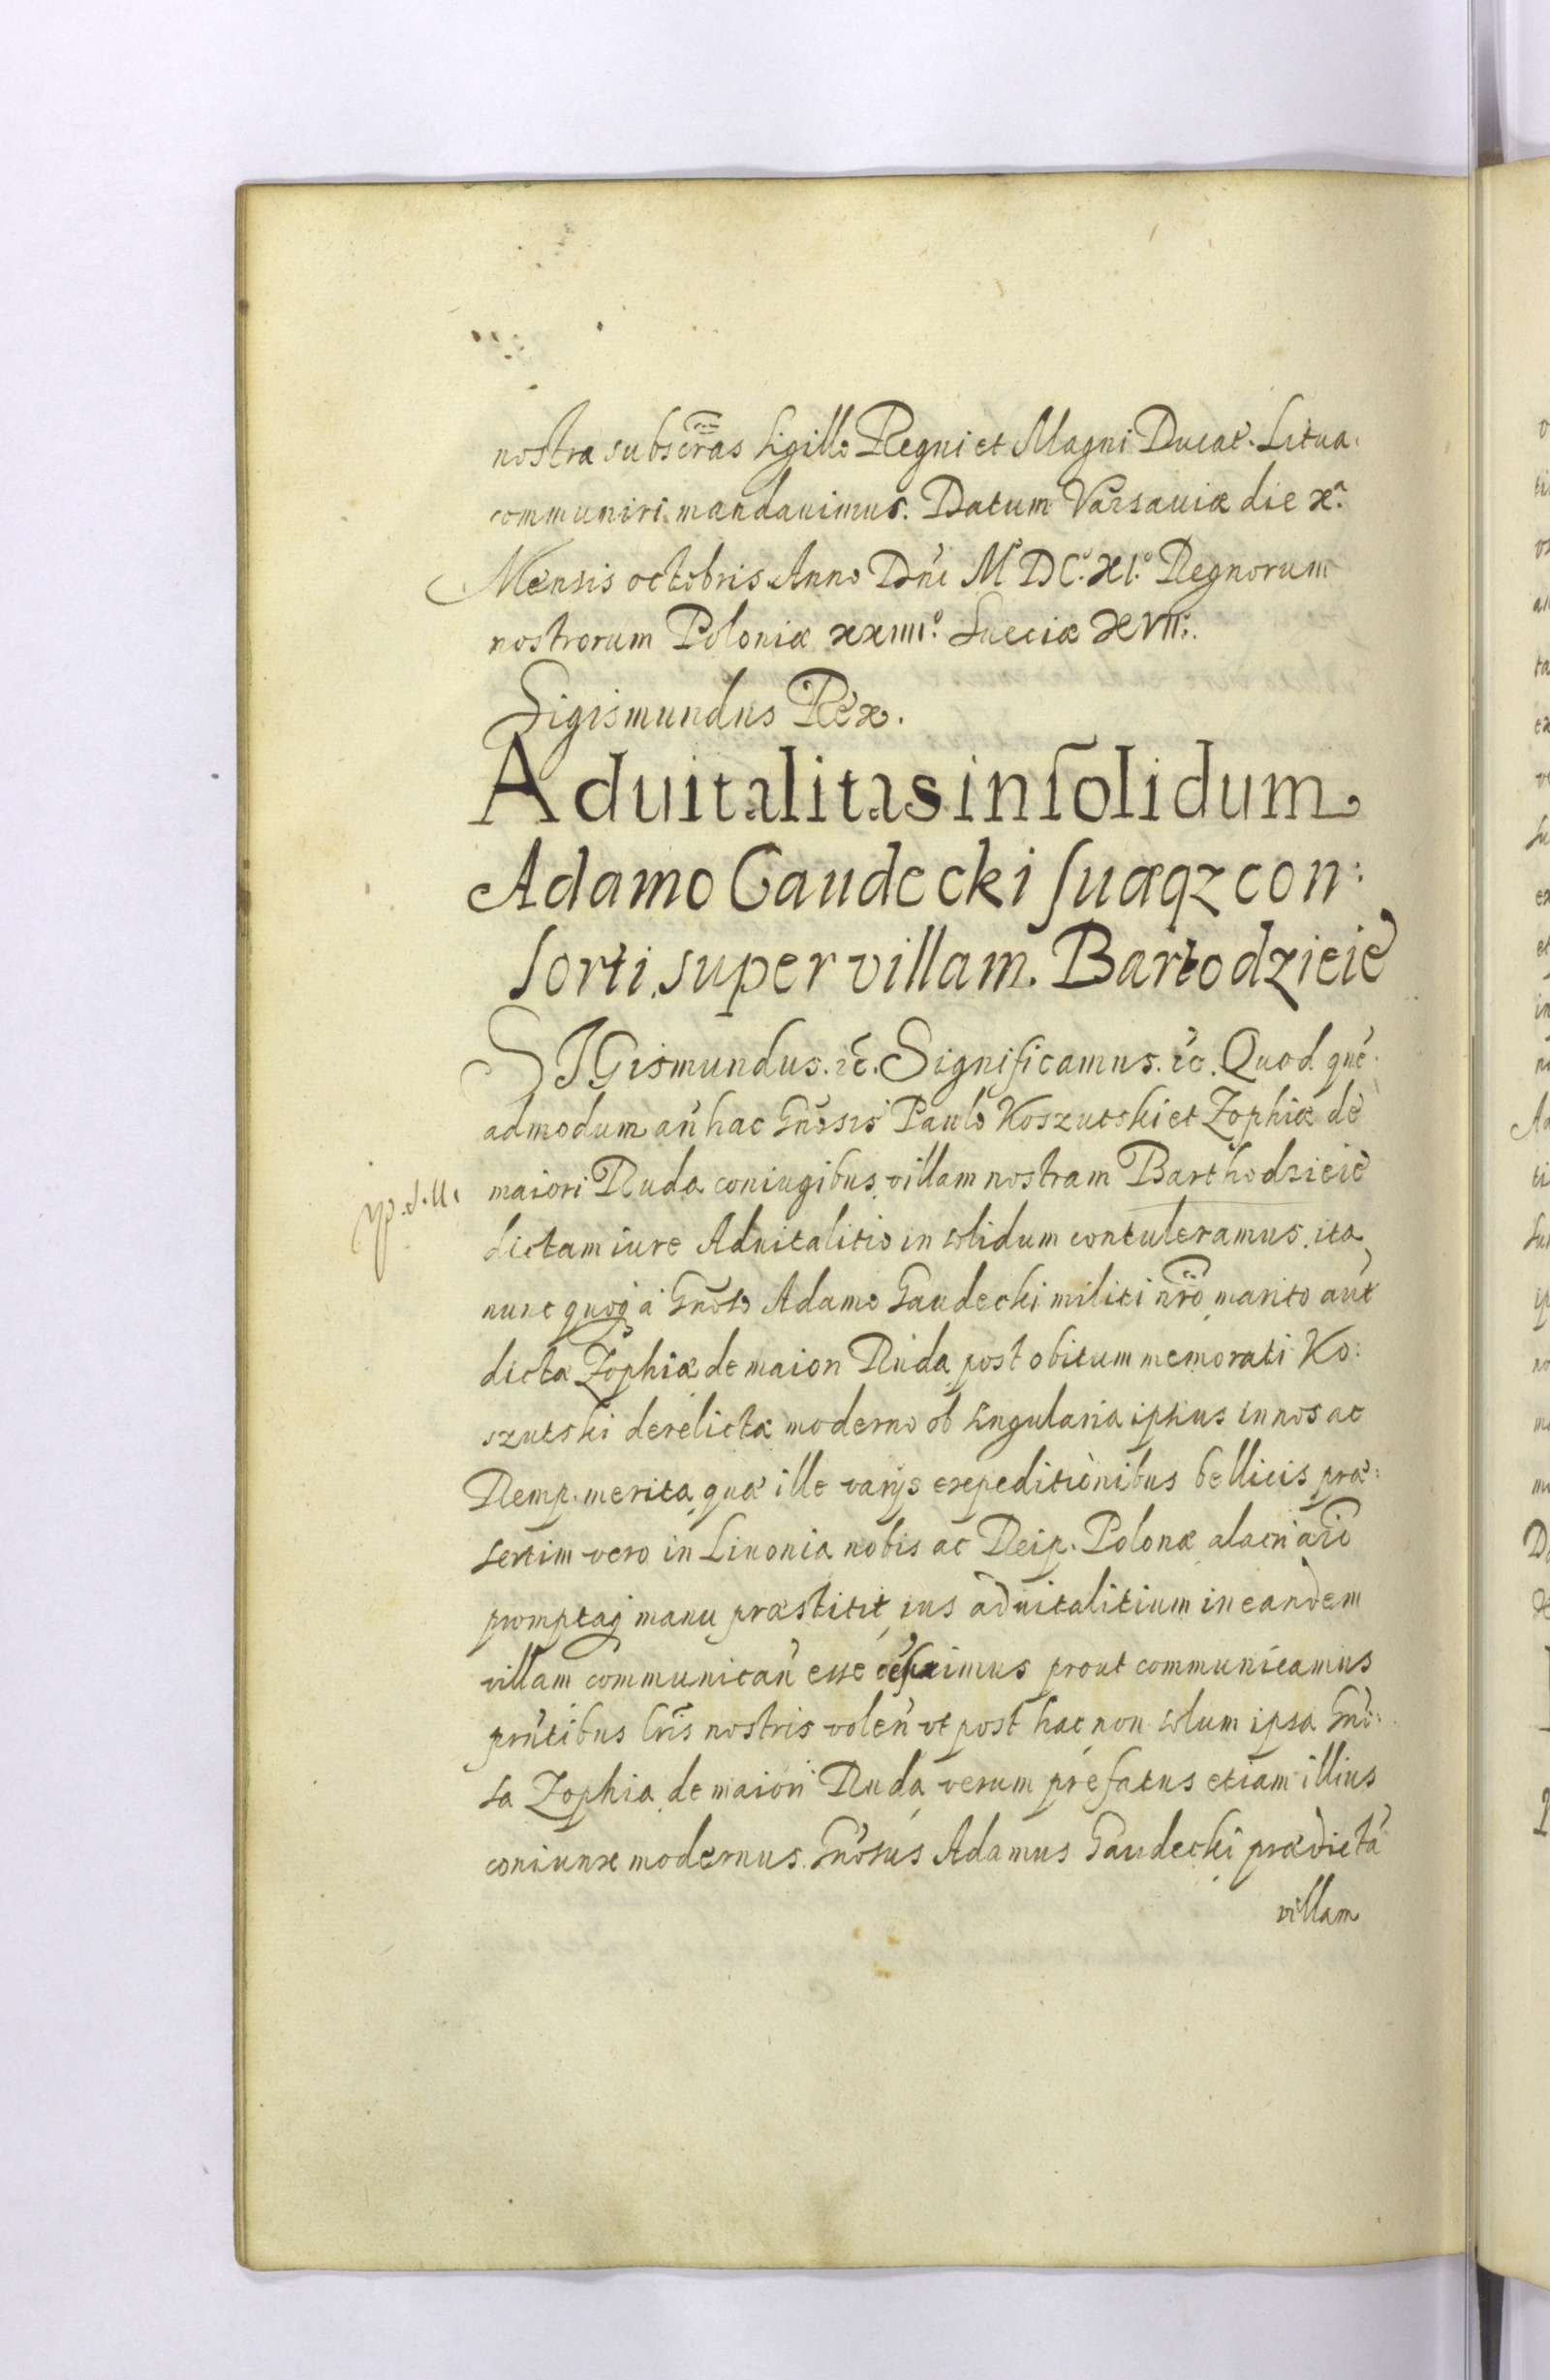 nostra subscr̃as sigillo Regni et Magni Ducat. Litua.
communiri mandauimus. Datum Varsauiæ die xª.
Mensis octobris Anno Dñi M DC.º XI.º Regnorum
nostrorum Poloniæ xxiiii.º Sueciæ XVII.
Sigismundus Rex.
Aduitalitas in solidum
Adamo Gaudecki suæqz con:
sorti super villam. Bartodzieie
SIGismundus. ۊc. Significamus. ۊc. Quod que
admodum añ hac Gñosis Paulo Koszutski et Zophiæ de
maiori Ruda coniugibus villam nostram Barthodzieie
dictam iure Aduitalitio in solidum contuleramus. ita
nunc quoq a Gñoso Adamo Gaudecki militi nr̃o marito ant
dictæ Zophiæ de maiori Ruda post obitum memorati Ko:
szutski derelictæ moderno ob singularia ipsius in nos ac
Remp. merita quæ ille varijs expeditionibus bellicis præ:
sertim vero in Liuonia nobis ac Reip. Polonæ alacri aĩo
promptaq manu præstitit, ius aduitalitium in eandem
villam communicañ esse duximus prout communicamus
pñtibus lr̃is nostris voleñ vt post hac non solum ipsa Gño:
sa Zophia de maiori Ruda verum præfatus etiam illius
coniunx modernus Gñosus Adamus Gaudecki prædictã
villam